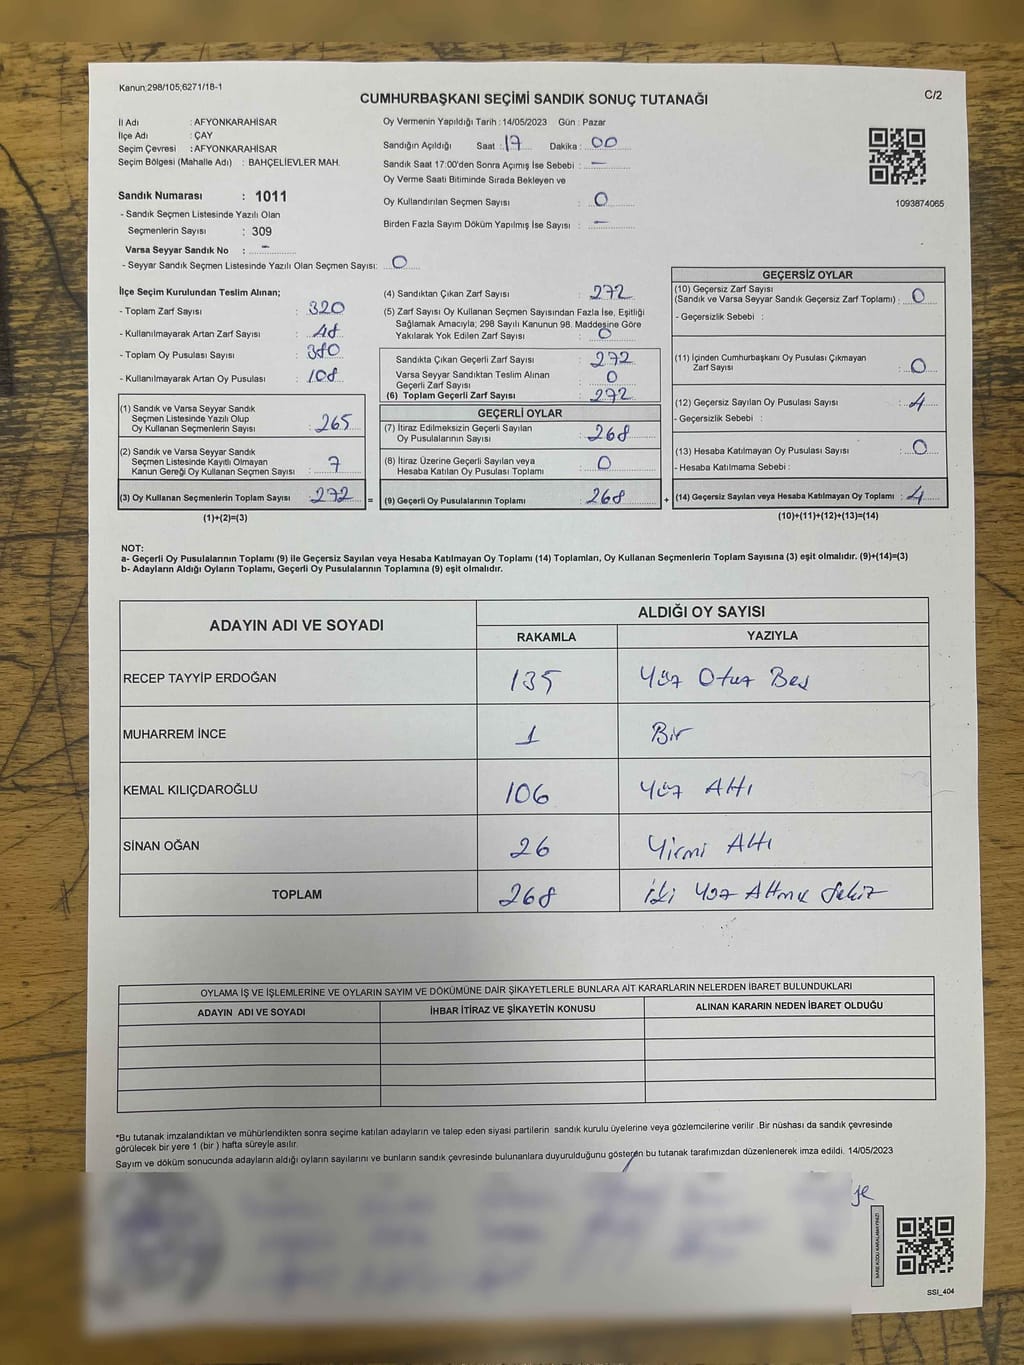 Kanun;298/105;6271/18-1
CUMHURBAŞKANI SEÇİMİ SANDIK SONUÇ TUTANAĞI
C/2
İl Adı : AFYONKARAHİSAR
İlçe Adı : ÇAY
Seçim Çevresi : AFYONKARAHİSAR
Seçim Bölgesi (Mahalle Adı) : BAHÇELİEVLER MAH.
Sandık Numarası : 1011
- Sandık Seçmen Listesinde Yazılı Olan
Seçmenlerin Sayısı : 309
Varsa Seyyar Sandık No : -
- Seyyar Sandık Seçmen Listesinde Yazılı Olan Seçmen Sayısı: 0
Oy Vermenin Yapıldığı Tarih : 14/05/2023 Gün : Pazar
Sandığın Açıldığı Saat : 17 Dakika : 00
Sandık Saat 17:00'den Sonra Açımış İse Sebebi : -
Oy Verme Saati Bitiminde Sırada Bekleyen ve
Oy Kullandırılan Seçmen Sayısı : 0
Birden Fazla Sayım Döküm Yapılmış İse Sayısı : -
1093874065
İlçe Seçim Kurulundan Teslim Alınan;
- Toplam Zarf Sayısı : 320
- Kullanılmayarak Artan Zarf Sayısı : 48
- Toplam Oy Pusulası Sayısı : 380
- Kullanılmayarak Artan Oy Pusulası : 108
(1) Sandık ve Varsa Seyyar Sandık
Seçmen Listesinde Yazılı Olup
Oy Kullanan Seçmenlerin Sayısı : 265
(2) Sandık ve Varsa Seyyar Sandık
Seçmen Listesinde Kayıtlı Olmayan
Kanun Gereği Oy Kullanan Seçmen Sayısı : 7
(3) Oy Kullanan Seçmenlerin Toplam Sayısı : 272 =
(1)+(2)=(3)
(4) Sandıktan Çıkan Zarf Sayısı : 272
(5) Zarf Sayısı Oy Kullanan Seçmen Sayısından Fazla İse, Eşitliği
Sağlamak Amacıyla; 298 Sayılı Kanunun 98. Maddesine Göre
Yakılarak Yok Edilen Zarf Sayısı : 0
Sandıkta Çıkan Geçerli Zarf Sayısı : 272
Varsa Seyyar Sandıktan Teslim Alınan
Geçerli Zarf Sayısı : 0
(6) Toplam Geçerli Zarf Sayısı : 272
GEÇERLİ OYLAR
(7) İtiraz Edilmeksizin Geçerli Sayılan
Oy Pusulalarının Sayısı : 268
(8) İtiraz Üzerine Geçerli Sayılan veya
Hesaba Katılan Oy Pusulası Toplamı : 0
(9) Geçerli Oy Pusulalarının Toplamı : 268 +
GEÇERSİZ OYLAR
(10) Geçersiz Zarf Sayısı
(Sandık ve Varsa Seyyar Sandık Geçersiz Zarf Toplamı) : 0
- Geçersizlik Sebebi :
(11) İçinden Cumhurbaşkanı Oy Pusulası Çıkmayan
Zarf Sayısı : 0
(12) Geçersiz Sayılan Oy Pusulası Sayısı : 4
- Geçersizlik Sebebi :
(13) Hesaba Katılmayan Oy Pusulası Sayısı : 0
- Hesaba Katılmama Sebebi :
(14) Geçersiz Sayılan veya Hesaba Katılmayan Oy Toplamı : 4
(10)+(11)+(12)+(13)=(14)
NOT:
a- Geçerli Oy Pusulalarının Toplamı (9) ile Geçersiz Sayılan veya Hesaba Katılmayan Oy Toplamı (14) Toplamları, Oy Kullanan Seçmenlerin Toplam Sayısına (3) eşit olmalıdır. (9)+(14)=(3)
b- Adayların Aldığı Oyların Toplamı, Geçerli Oy Pusulalarının Toplamına (9) eşit olmalıdır.
ADAYIN ADI VE SOYADI
ALDIĞI OY SAYISI
RAKAMLA YAZIYLA
RECEP TAYYİP ERDOĞAN 135 Yüz Otuz Beş
MUHARREM İNCE 1 Bir
KEMAL KILIÇDAROĞLU 106 Yüz Altı
SİNAN OĞAN 26 Yirmi Altı
TOPLAM 268 İki Yüz Altmış Sekiz
OYLAMA İŞ VE İŞLEMLERİNE VE OYLARIN SAYIM VE DÖKÜMÜNE DAİR ŞİKAYETLERLE BUNLARA AİT KARARLARIN NELERDEN İBARET BULUNDUKLARI
ADAYIN ADI VE SOYADI İHBAR İTİRAZ VE ŞİKAYETİN KONUSU ALINAN KARARIN NEDEN İBARET OLDUĞU
*Bu tutanak imzalandıktan ve mühürlendikten sonra seçime katılan adayların ve talep eden siyasi partilerin sandık kurulu üyelerine veya gözlemcilerine verilir .Bir nüshası da sandık çevresinde
görülecek bir yere 1 (bir ) hafta süreyle asılır.
Sayım ve döküm sonucunda adayların aldığı oyların sayılarını ve bunların sandık çevresinde bulunanlara duyurulduğunu gösteren bu tutanak tarafımızdan düzenlenerek imza edildi. 14/05/2023
SSI_404